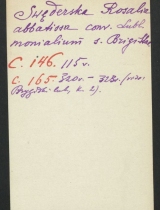 Swęderska Rosalia
abbatissa conv. Lubl.
monialium s. Brigittae
C. 146. 115v.
C. 165. 320v. - 322v. (
Brygitki Lub. k. 2).